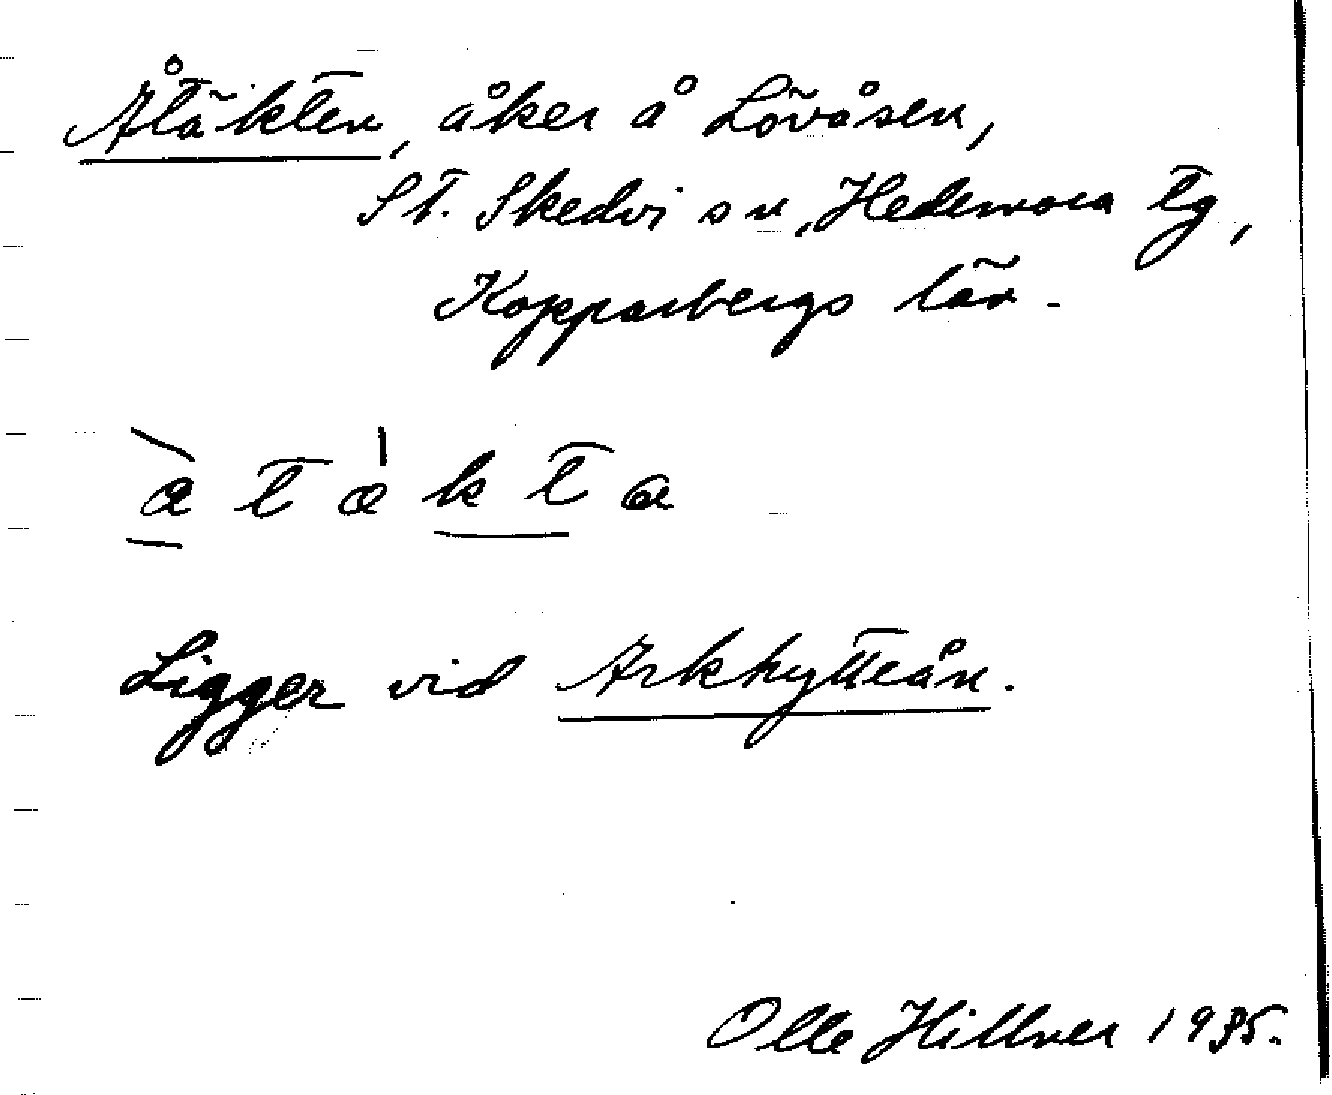 Åtäkten, åker å Lövåsen,
St. Skedvi sn, Hedemora tg,
Kopparbergs län.
a t æ k t a
Ligger vid Arkhytteån.
Olle Hillner 1935.